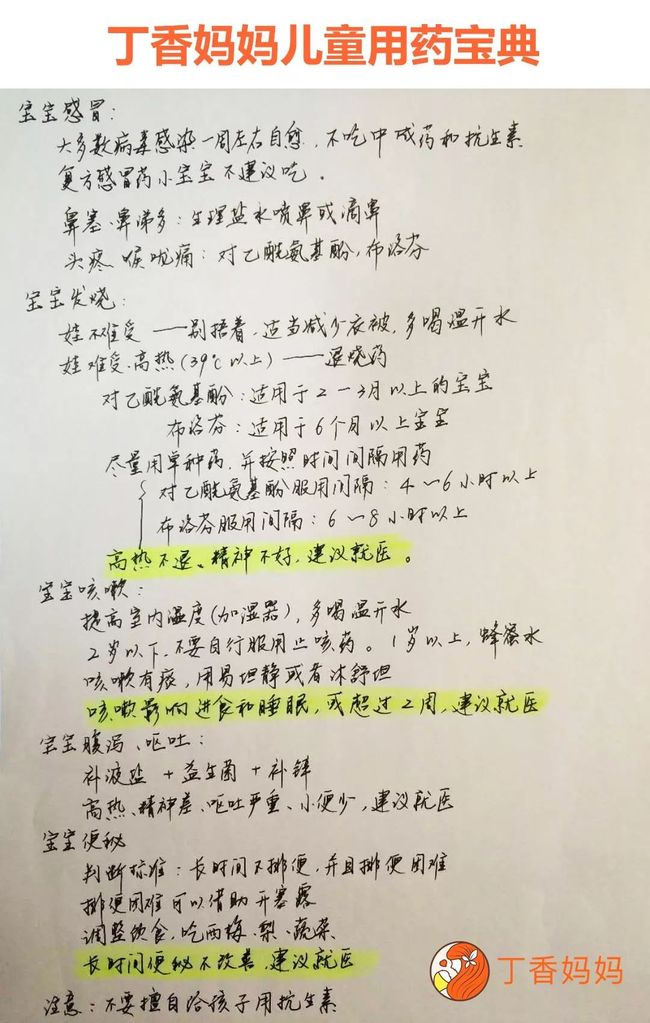 丁香妈妈儿童用药宝典
宝宝感冒:
大多数病毒感染一周左右自愈,不吃中成药和抗生素
复方感冒药小宝宝不建议吃。
鼻塞、鼻涕多:生理盐水喷鼻或滴鼻
头疼 喉咙痛:对乙酰氨基酚,布洛芬
宝宝发烧:
娃不难受——别捂着,适当减少衣被,多喝温开水
娃难受、高热(39℃以上)——退烧药
对乙酰氨基酚:适用于2—3月以上的宝宝
布洛芬:适用于6个月以上宝宝
尽量用单种药,并按照时间间隔用药
对乙酰氨基酚服用间隔:4—6小时以上
布洛芬服用间隔:6—8小时以上
高热不退、精神不好,建议就医。
宝宝咳嗽:
提高室内湿度(加湿器),多喝温开水
2岁以下,不要自行服用止咳药。1岁以上,蜂蜜水
咳嗽有痰,用易坦静或者沐舒坦
咳嗽影响进食和睡眠,或超过2周,建议就医
宝宝腹泻、呕吐:
补液盐+益生菌+补锌
高热、精神差、呕吐严重、小便少,建议就医
宝宝便秘
判断标准:长时间不排便,并且排便困难
排便困难可以借助开塞露
调整饮食,吃西梅、梨、蔬菜
长时间便秘不改善,建议就医
注意:不要擅自给孩子用抗生素
丁香妈妈